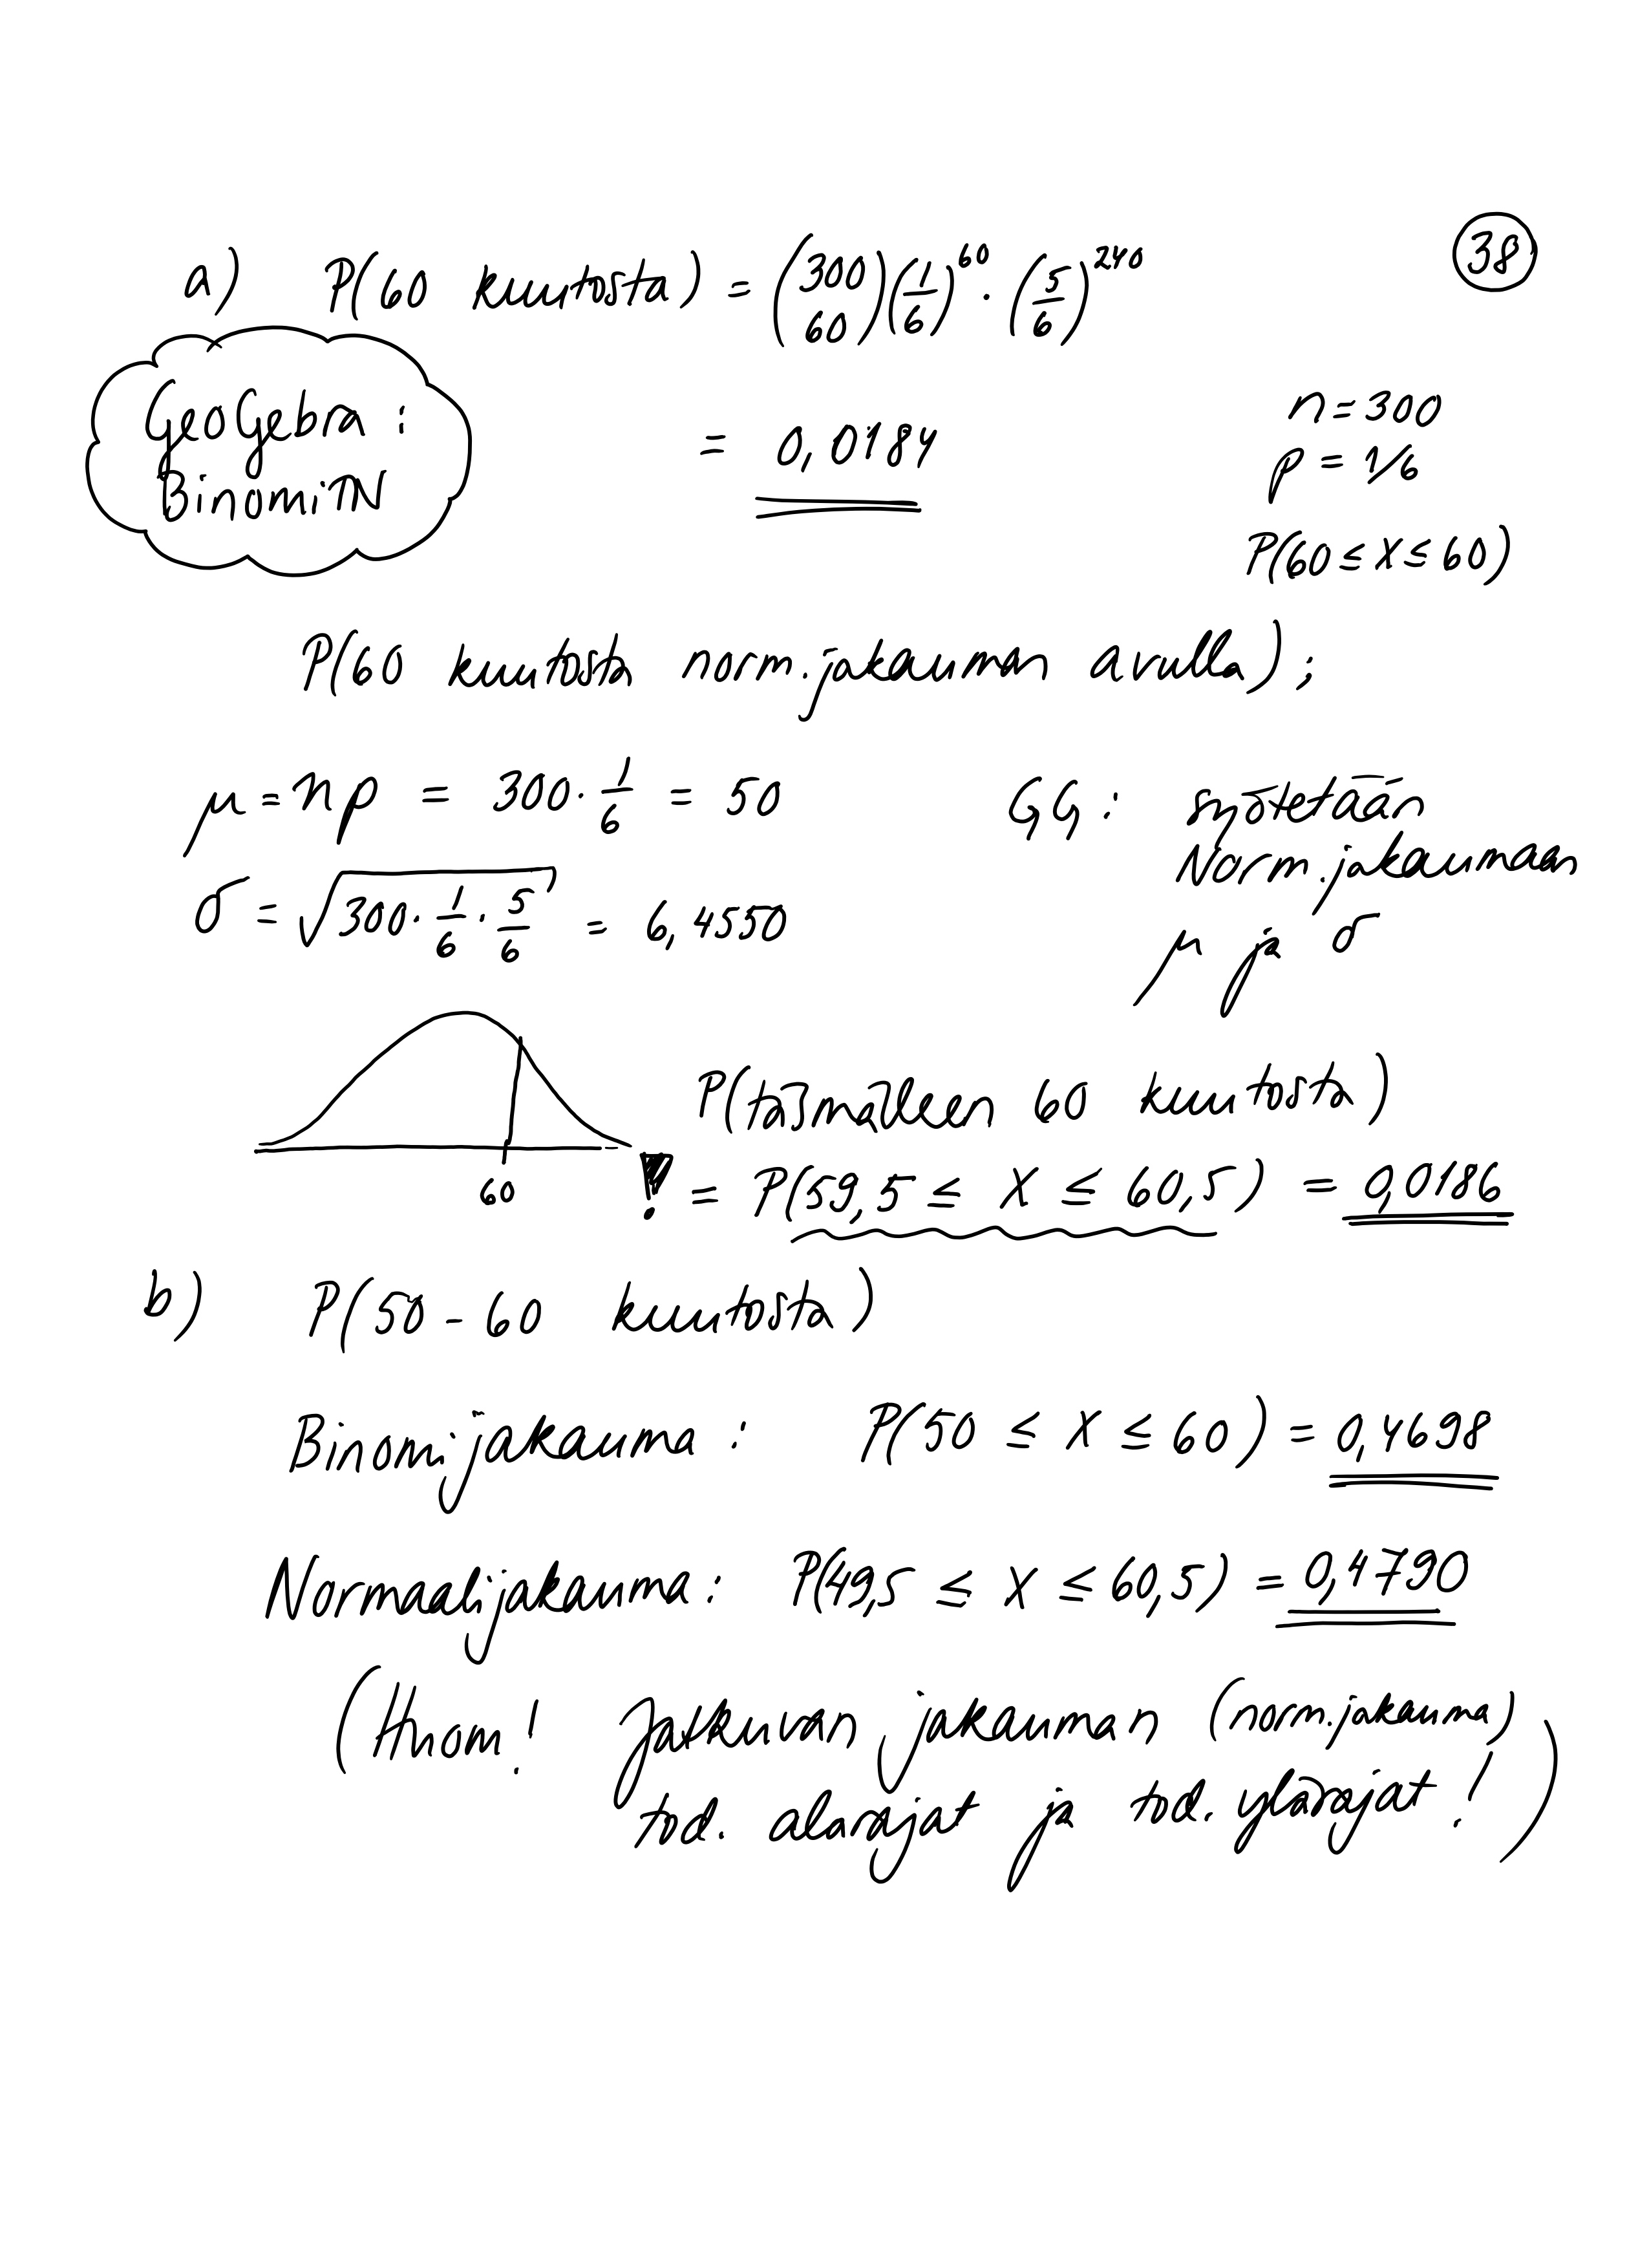 38
a) P(60 kuutosta) = (300 60)(1/6)^60 · (5/6)^240
GeoGebra:
BinomiTN
= 0,0184
n = 300
p = 1/6
P(60 ≤ X ≤ 60)
P(60 kuutosta norm.jakauman avulla);
μ = np = 300 · 1/6 = 50
GG: syötetään
Norm.jakaumaan
μ ja σ
σ = √(300 · 1/6 · 5/6) = 6,4550
60
P(täsmälleen 60 kuutosta)
! = P(59,5 ≤ X ≤ 60,5) = 0,0186
b) P(50-60 kuutosta)
Binomijakauma: P(50 ≤ X ≤ 60) = 0,4698
Normaalijakauma: P(49,5 ≤ X ≤ 60,5) = 0,4790
(Huom! Jatkuvan jakauman (norm.jakauma)
tod. alarajat ja tod. ylärajat!)